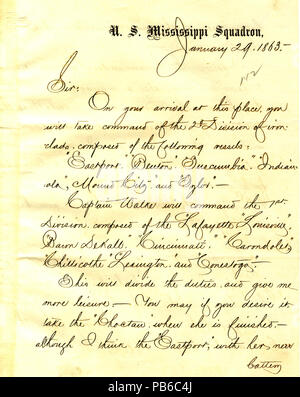 U. S. Mississippi Squadron,
January 29. 1863.
Sir:
On your arrival at this place, you
will take command of the 2d Division of iron
clads, composed of the following vessels:
"Eastport," "Benton," "Tuscumbia," "Indian-
ola," "Mound City" and "Tyler." —
Captain Walke will command the 1st
Division composed of the "Lafayette," "Louisville",
"Baron DeKalb," "Cincinnati," "Carondelet"
"Chillicothe" "Lexington," and "Conestoga".
This will divide the duties, and give me
more leisure — You may if you desire it
take the "Choctaw", when she is finished, —
although I think the "Eastport", with her new
battery
alamy
Image ID: PB6C4J
www.alamy.com